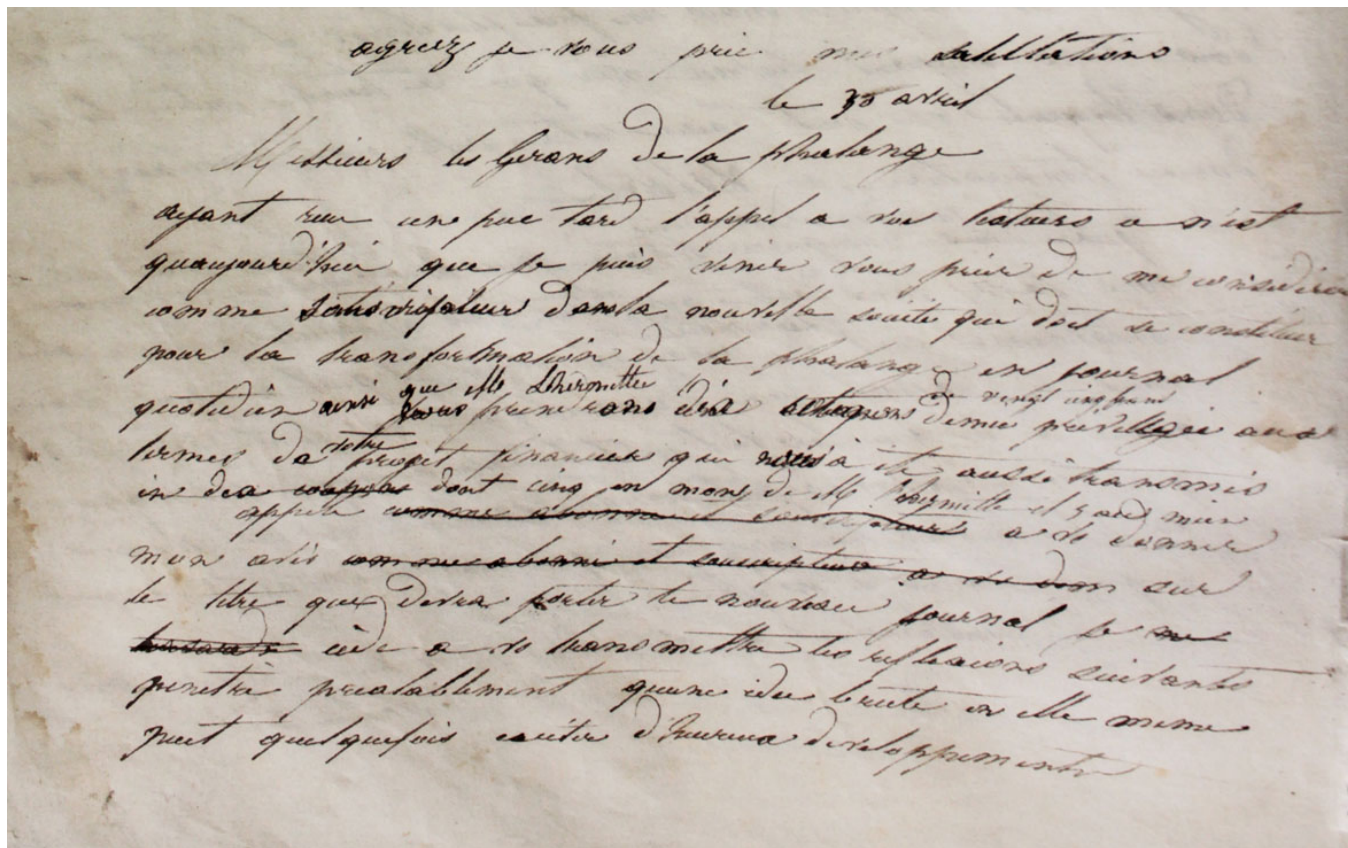 agreez je vous prie mes salutations
le 30 avril
Messieurs les Gerans de la phalange
ayant reçu un peu tard l'appel a vos lecteurs ce n'est
quaujourd'hui que je puis venir vous prier de me considérer
comme souscripteur dans la nouvelle société qui doit se constituer
pour la transformation de la phalange en journal
que Mr Lhermitte de vingt cinq francs
quotidien ainsi nous prendrons dix coupons demie privilégié aux
termes de votre projet financier qui nous a été aussi transmis
in dix coupons dont cinq en mon de Mr Lhermitte et 5 au mien
appelé comme abonné et souscripteur a vs donner
mon avis comme abonné et souscripteur a vs donn sur
le titre que devra porter le nouveau journal je me
hasarde cède a vs transmettre les reflexions suivantes
penetré prealablement quune idée brute en elle meme
peut quelquefois exciter d'heureux developpements